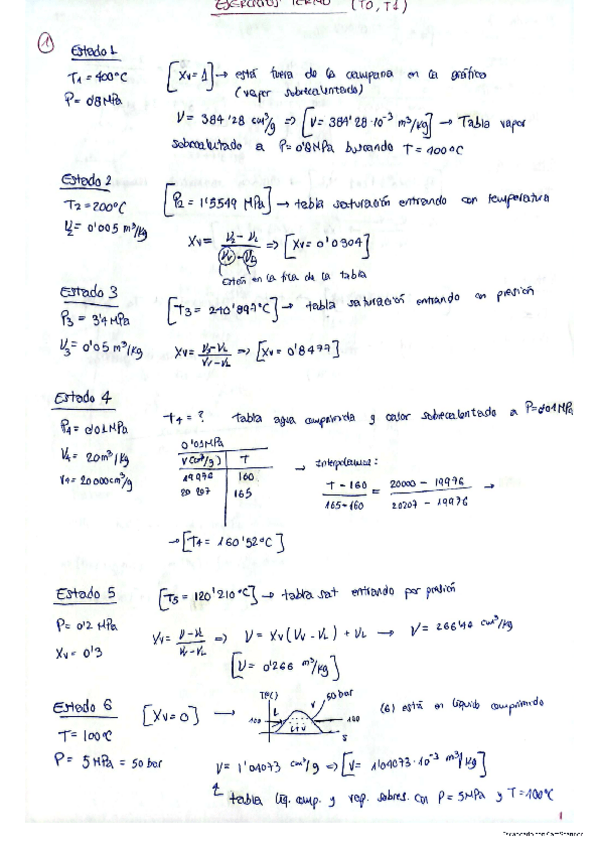 EJERCICIOS TERMO (T0, T1)
1
Estado 1
T1 = 400ºC
P = 0'8 MPa
[Xv = 1] → está fuera de la campana en la gráfica
(vapor sobrecalentado)
V = 384'28 cm³/g => [V = 384'28·10⁻³ m³/kg] → Tabla vapor
sobrecalentado a P=0'8MPa buscando T = 400ºC
Estado 2
T2 = 200ºC
V2 = 0'005 m³/kg
[P2 = 1'5549 MPa] → tabla saturación entrando con temperatura
Xv = V2 - VL / Vv - VL => [Xv = 0'0304]
están en la fila de la tabla
Estado 3
P3 = 3'4 MPa
V3 = 0'05 m³/kg
[T3 = 240'897ºC] → tabla saturación entrando con presión
Xv = V3 - VL / Vv - VL => [Xv = 0'8477]
Estado 4
P4 = 0'01 MPa
V4 = 20 m³/kg
V4 = 20000 cm³/g
T4 = ? Tabla agua comprimida y calor sobrecalentado a P=0'01MPa
0'01MPa
V(cm³/g) T
19976 160
20207 165
→ Interpolamos:
T - 160 / 165 - 160 = 20000 - 19976 / 20207 - 19976 →
→ [T4 = 160'52ºC]
Estado 5
P = 0'2 MPa
Xv = 0'3
[T5 = 120'210ºC] → tabla sat entrando por presión
Xv = V - VL / Vv - VL => V = Xv (Vv - VL) + VL → V = 266'40 cm³/g
[V = 0'266 m³/kg]
Estado 6
T = 100ºC
P = 5 MPa = 50 bar
[Xv = 0] →
50 bar
L
V
L+V
100
100
S
(6) está en líquido comprimido
V = 1'04073 cm³/g => [V = 1'04073·10⁻³ m³/kg]
tabla líq. comp. y vap. sobres. con P = 5MPa y T = 100ºC
1
Escaneado con CamScanner